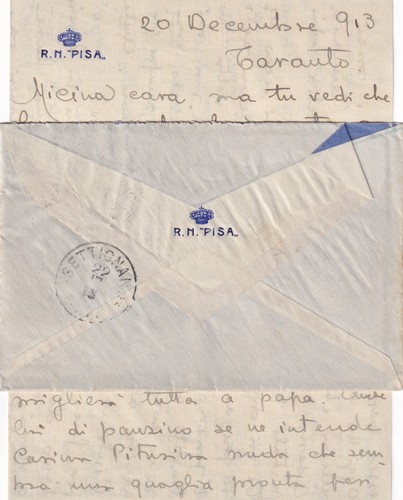 20 Decembre 913
R.N. "PISA"
Taranto
Micina cara, ma tu vedi che
R.N. "PISA"
SETTIGNANO
22
migliera tutta a papà.
di panzino se ne intende
Carina Pitusina nuda che sem
bra una quaglia pronta per